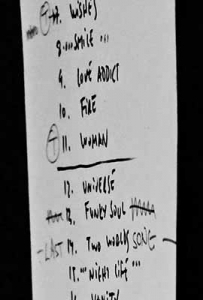 7. WISHES
8. ... SMILE ...
9. LOVE ADDICT
10. FIRE
T 11. WOMAN
12. UNIVERSE
13. FUNKY SOUL
- LAST 14. TWO WORLDS SONG -
15. ... NIGHT LIFE ...
16. VANITY